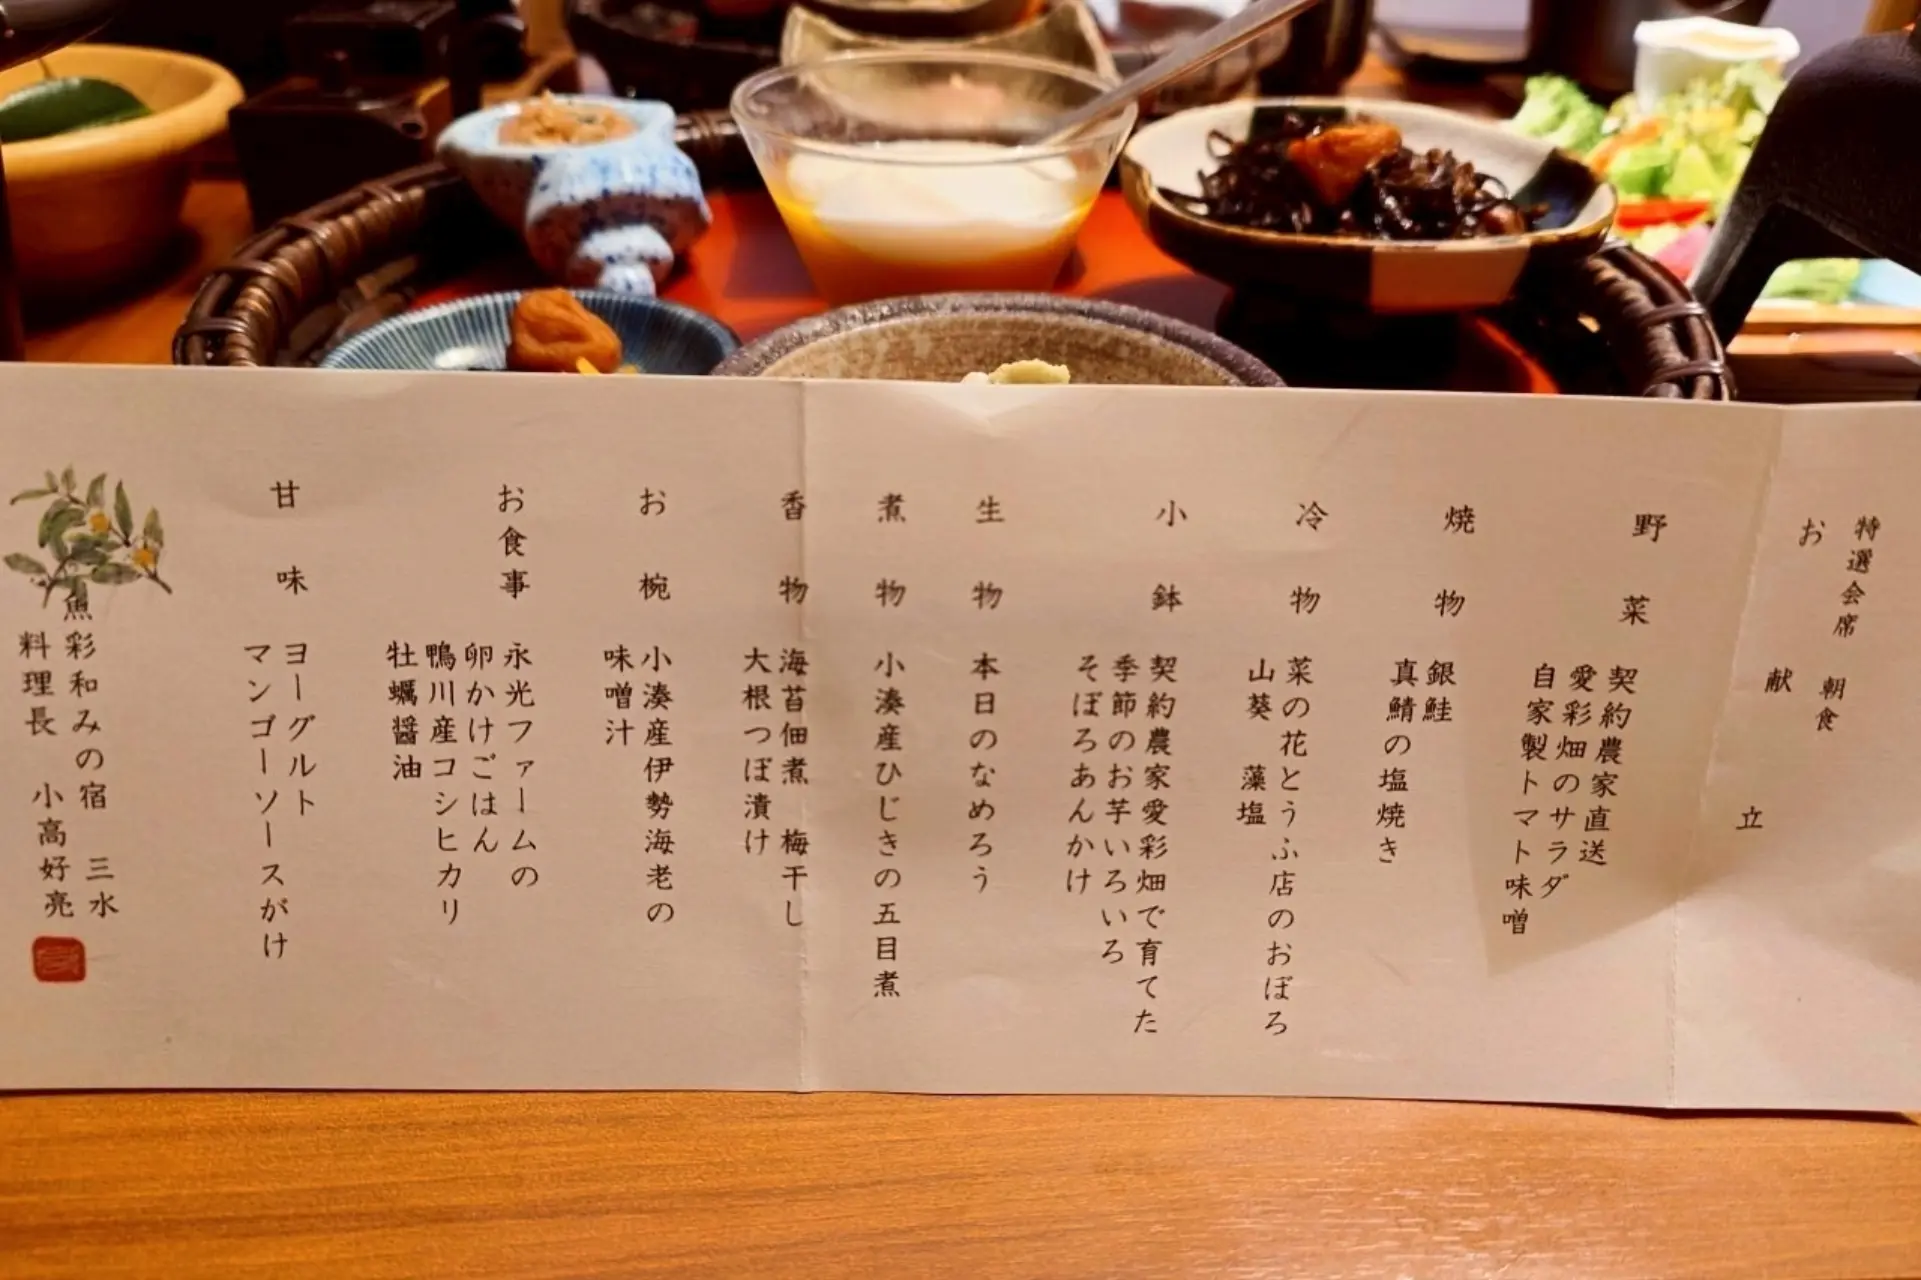 特選会席 朝食
お献立
野菜
契約農家直送
愛彩畑のサラダ
自家製トマト味噌
焼物
銀鮭
真鯖の塩焼き
冷物
菜の花とうふ店のおぼろ
山葵 藻塩
小鉢
契約農家愛彩畑で育てた
季節のお芋いろいろ
そぼろあんかけ
生物
本日のなめろう
煮物
小湊産ひじきの五目煮
香物
海苔佃煮 梅干し
大根つぼ漬け
お椀
小湊産伊勢海老の
味噌汁
お食事
永光ファームの
卵かけごはん
鴨川産コシヒカリ
牡蠣醤油
甘味
ヨーグルト
マンゴーソースがけ
魚彩和みの宿 三水
料理長 小高好亮